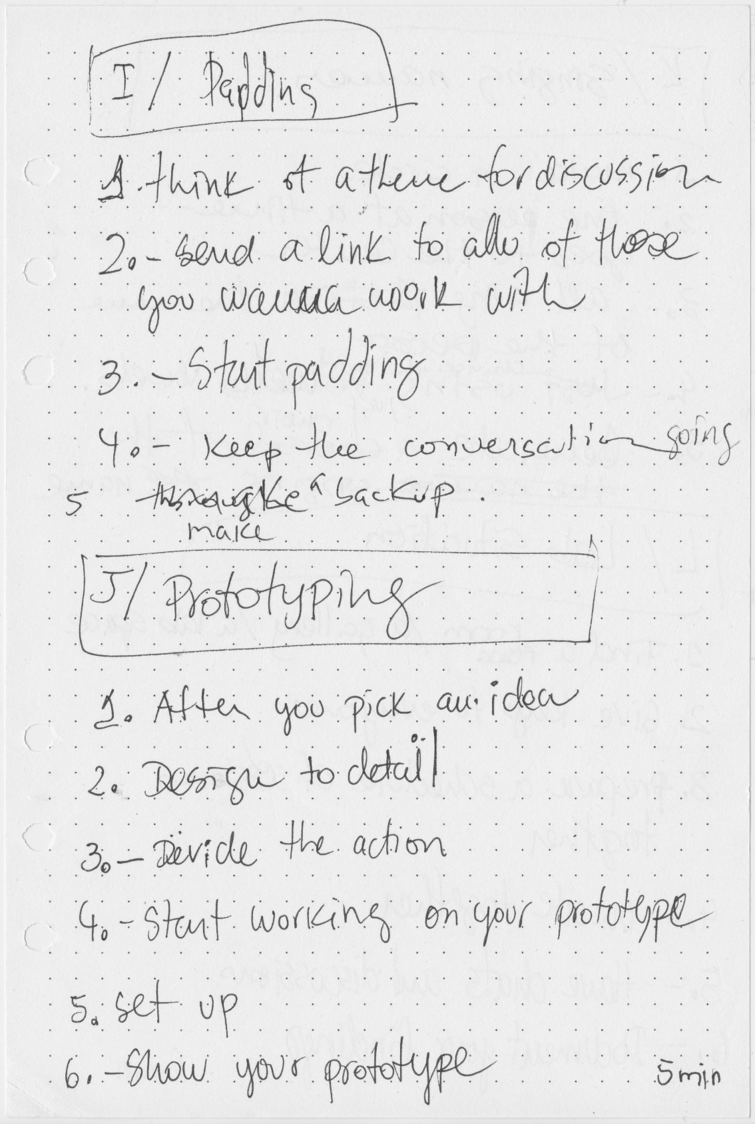 I/ Padding
1. think of a theme for discussion
2.- Send a link to all of those
you wanna work with
3.- Start padding
4.- Keep the conversation going
5 make a backup.
J/ Prototyping
1. After you pick an idea
2. Design to detail
3.- Devide the action
4.- Start working on your prototype
5. set up
6.- Show your prototype
5 min